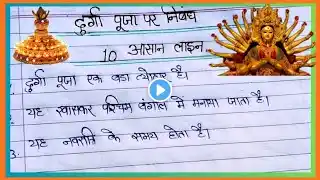 दुर्गा पूजा पर निबंध
10 आसान लाइन
दुर्गा पूजा एक बड़ा त्योहार है।
यह खासकर पश्चिम बंगाल में मनाया जाता है।
3. यह नवरात्रि के समय होता है।